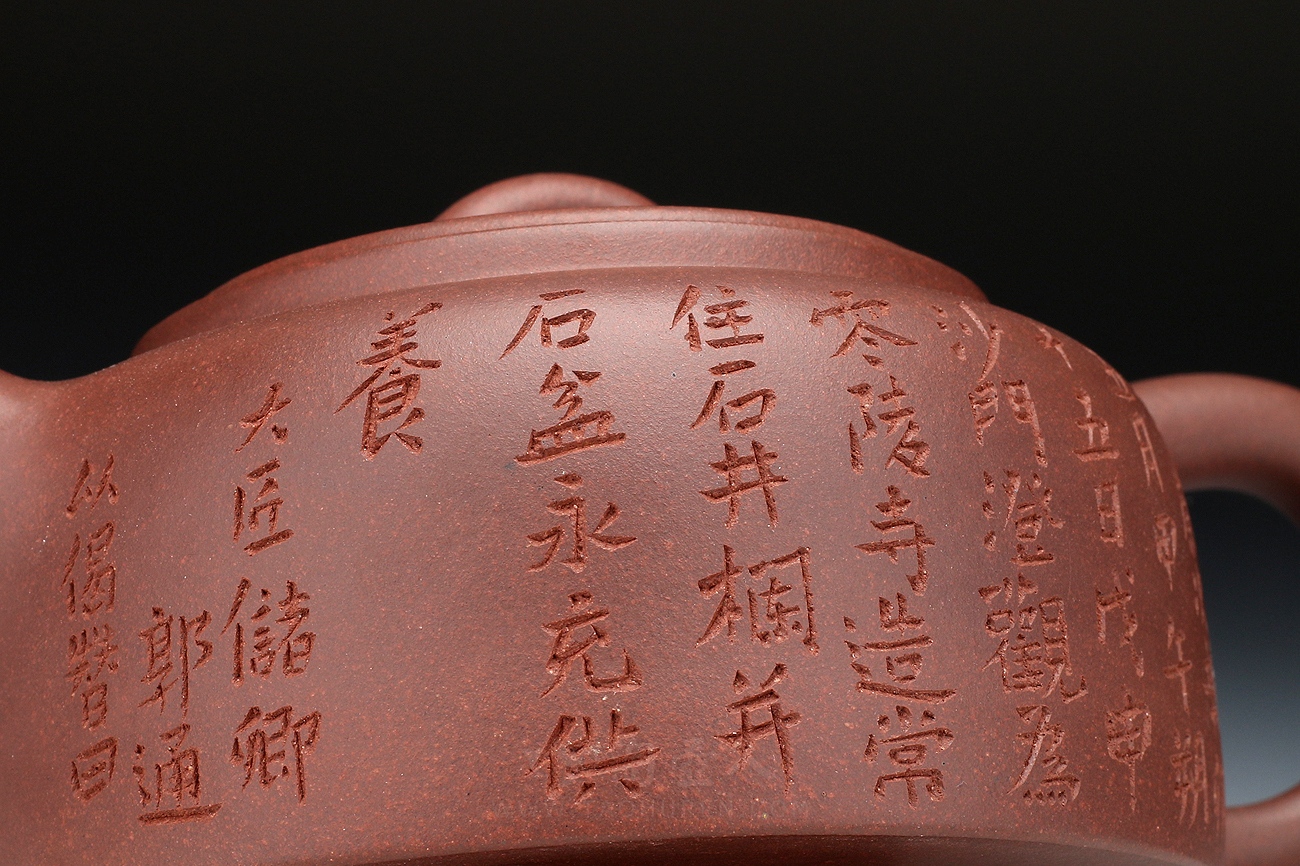 月甲午朔
十五日戊申
沙門澄觀為
零陵寺造常
住石井欄并
石盆永充供
養
大匠儲卿
郭通
以偈贊曰